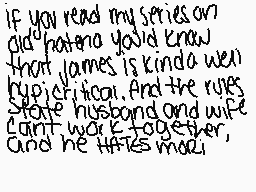 if you read my series on
old hatena you'd know
that james is kinda well
hypicritical. And the rules
state husband and wife
cain't work together,
and he HATES mari